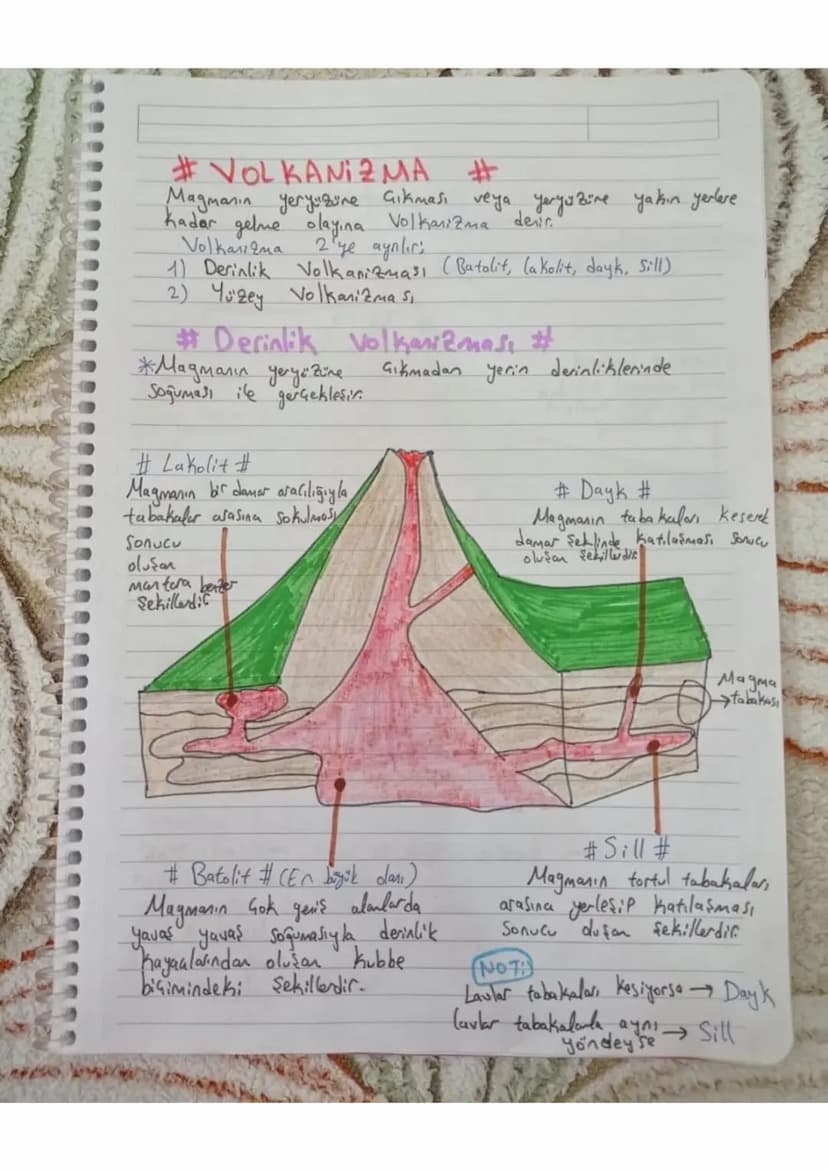 # VOLKANİZMA #
Magmanın yeryüzüne çıkması veya yeryüzüne yakın yerlere
kadar gelme olayına Volkanizma denir.
Volkanizma 2'ye ayrılır;
1) Derinlik Volkanizması (Batolit, lakolit, dayk, sill)
2) Yüzey Volkanizması
# Derinlik Volkanizması #
*Magmanın yeryüzüne çıkmadan yerin derinliklerinde
soğuması ile gerçekleşir.
# Lakolit #
Magmanın bir damar aracılığıyla
tabakalar arasına sokulması
sonucu
oluşan
mantara benzer
şekillerdir
# Dayk #
Magmanın tabakaları keserek
damar şeklinde katılaşması sonucu
oluşan şekillerdir.
Magma
tabakası
# Batolit # (En büyük olanı)
Magmanın çok geniş alanlarda
yavaş yavaş soğumasıyla derinlik
kayaçlarından oluşan kubbe
biçimindeki şekillerdir.
# Sill #
Magmanın tortul tabakaları
arasına yerleşip katılaşması
sonucu oluşan şekillerdir.
NOT:
Lavlar tabakaları kesiyorsa → Dayk
Lavlar tabakalarla aynı → Sill
yöndeyse